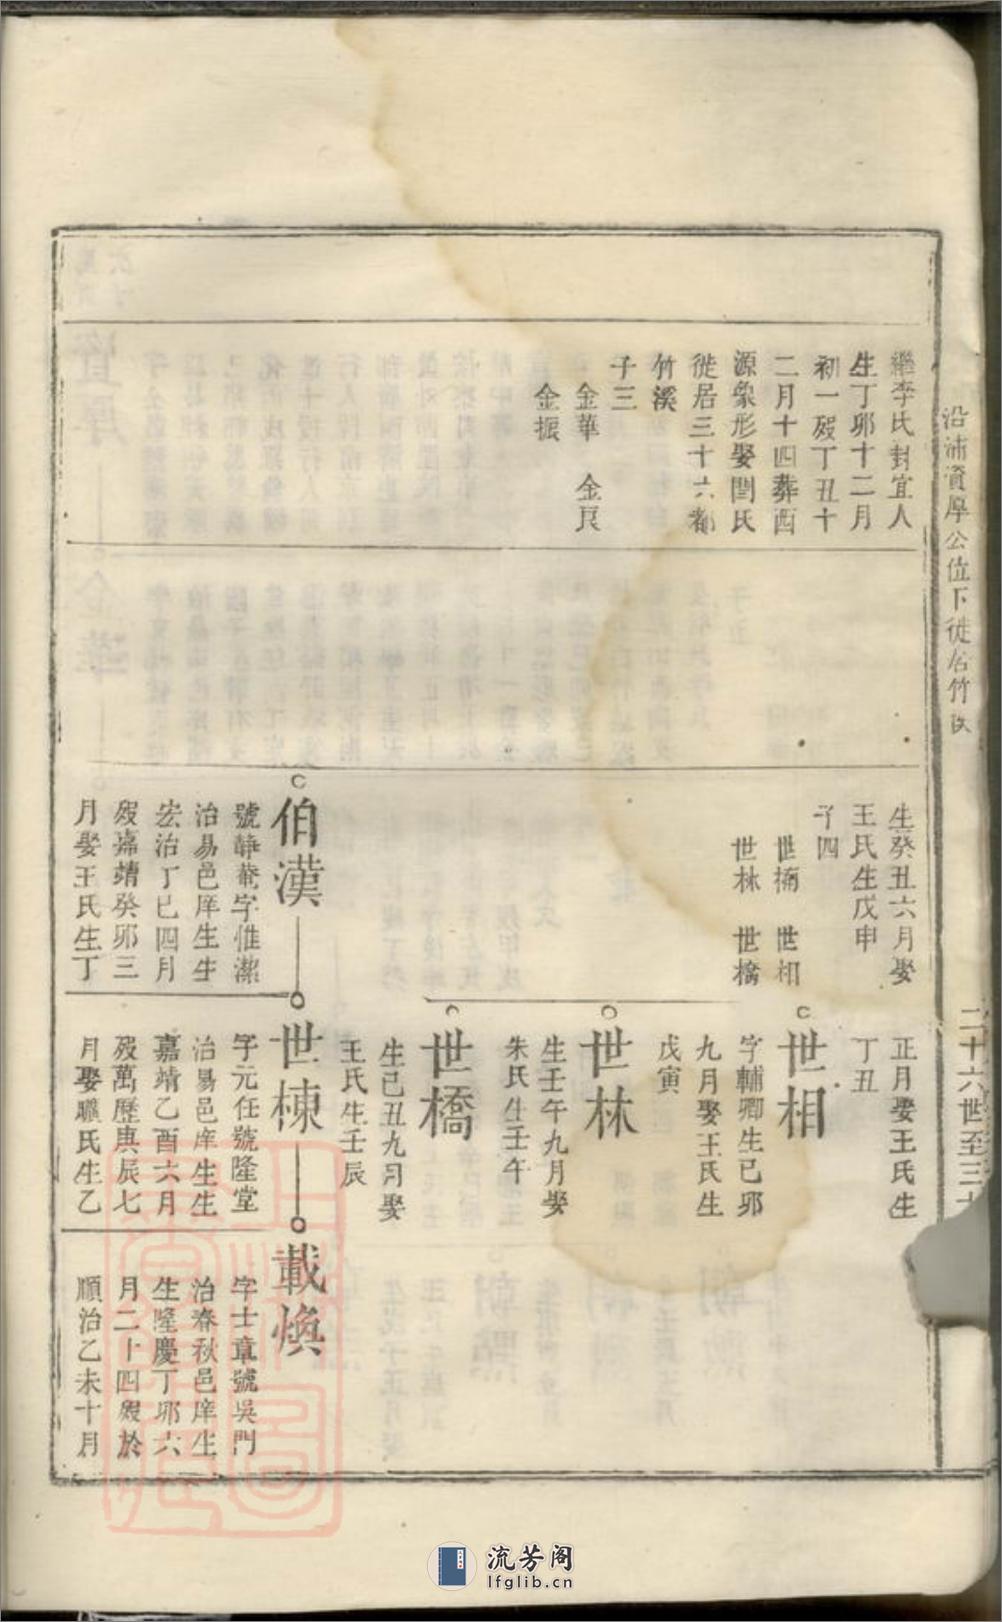 沿浦資厚公位下徙居竹
二十六世至三十
繼李氏封宜人
生丁卯十二月
初一殁丁丑十
二月十四葬西
源象形娶閆氏
徙居三十六都
竹溪
子三
金華 金良
金振
生癸丑六月娶
王氏生戊申
子四
世橋 世相
世林 世檎
伯漢
號靜菴字惟潔
治易邑庠生生
宏治丁巳四月
殁嘉靖癸卯三
月娶王氏生丁
正月娶王氏生
丁丑
世相
字輔卿生己卯
九月娶王氏生
戊寅
世林
生壬午九月娶
朱氏生壬午
世橋
生己丑九月娶
王氏生壬辰
世棟
字元任號隆堂
治易邑庠生生
嘉靖乙酉六月
殁萬歷庚辰七
月娶職氏生乙
載煥
字士章號吳門
治春秋邑庠生
生隆慶丁卯六
月二十四殁於
順治乙未十月
流芳阁
lfglib.cn